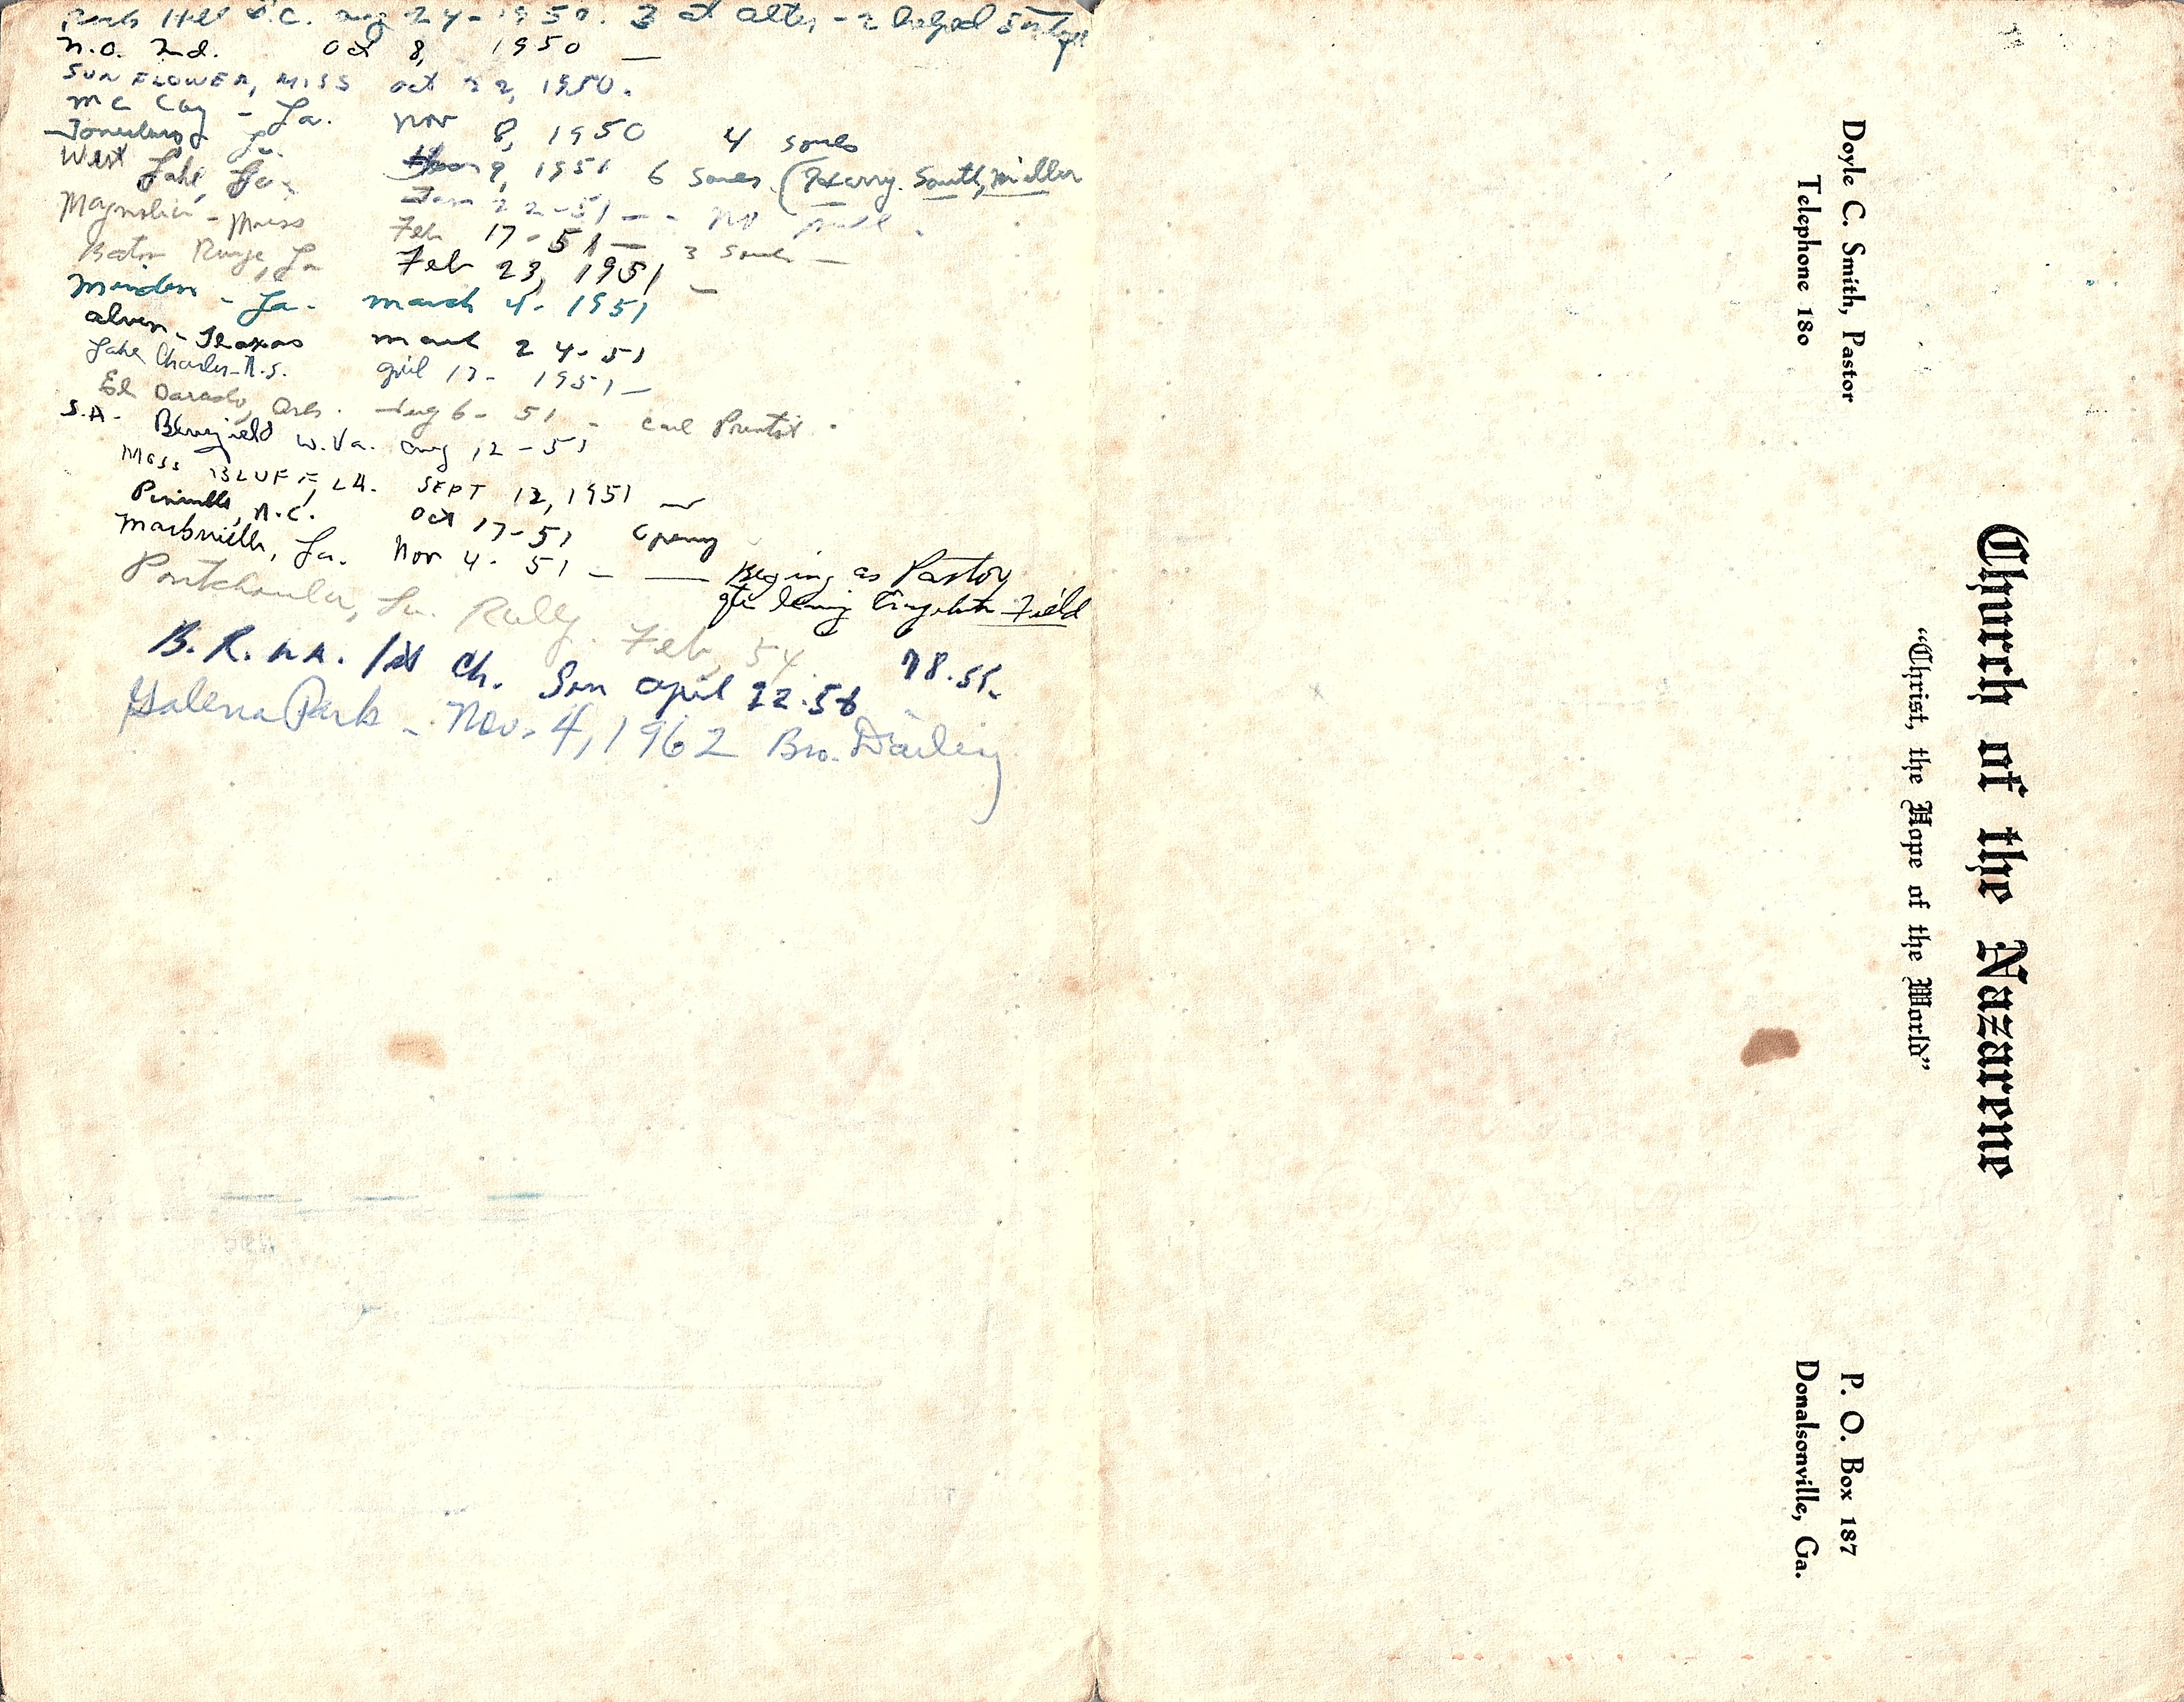 Rock Hill S.C. Aug 24-1950. 3 at alter, - 2 helped
N.O. 2nd. Oct 8, 1950 —
SUNFLOWER, MISS Oct 22, 1950.
Mc Coy - La. Nov 8, 1950 4 souls
Jonesburg La. 9, 1951 6 Souls (Harry. South, Miller
West Lake, La. Jan 22-51 - - No
Magnolia - Miss Feb 17-51 — 3 Souls —
Baton Rouge, La Feb 23, 1951 —
Minden - La. March 4 - 1951
Alven - Texas March 24-51
Lake Charles - N.S. April 17 - 1951 —
El Darado, Ark. Aug 6 - 51 - Carl Prentis.
S.A. W.Va. Aug 12-51
MOSS BLUFF, LA. SEPT 12, 1951 —
N.C. Oct 17-51 Opening
Marksville, La. Nov 4 - 51 — — Begining as Pastor
after leaving Field
Pontchoula, La. Rally. Feb, 54.
B.R. LA. 1st Ch. Sun April 22.56 78.55.
Galena Park - Nov. 4, 1962 Bro. Dailey
Church of the Nazarene
“Christ, the Hope of the World”
Doyle C. Smith, Pastor
Telephone 180
P. O. Box 187
Donalsonville, Ga.